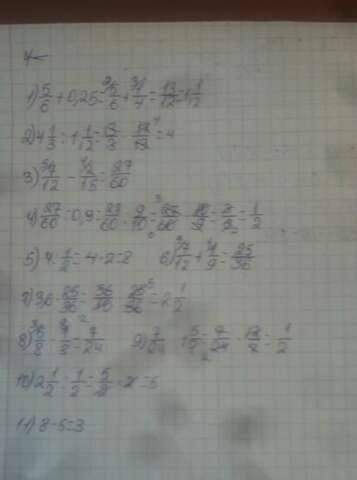 1) 5/6 + 0,25 = 5/6 + 1/4 = 13/12 = 1 1/12
2) 4 1/3 : 1 1/12 = 13/3 · 12/13 = 4
3) 7/12 - 2/15 = 27/60
4) 27/60 : 0,9 = 27/60 : 9/10 = 1/2
5) 4 : 1/2 = 4 · 2 = 8
6) 7/12 + 4/9 = 25/36
7) 3,6 · 25/36 = 36/10 · 25/36 = 2 1/2
8) 5/8 - 1/3 = 7/24
9) 7/24 · 1 5/7 = 7/24 · 12/7 = 1/2
10) 2 1/2 : 1/2 = 5/2 · 2 = 5
11) 8-5=3